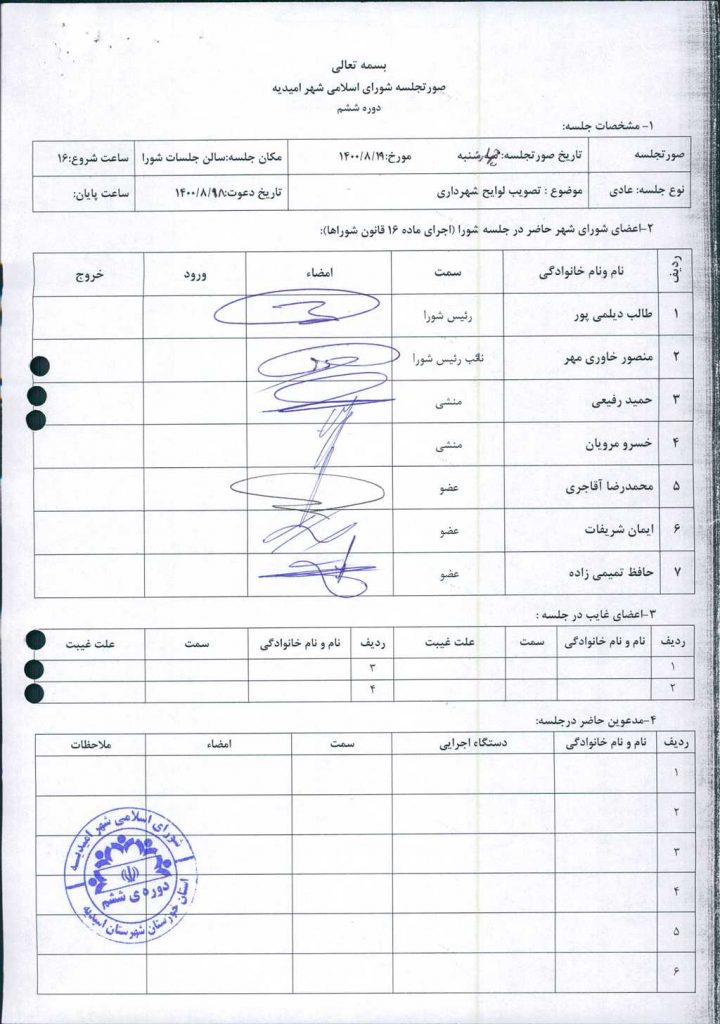 بسمه تعالی
صورتجلسه شورای اسلامی شهر امیدیه
دوره ششم
۱- مشخصات جلسه:
صورتجلسه تاریخ صورتجلسه: چهارشنبه مورخ:۱۴۰۰/۸/۱۹ مکان جلسه:سالن جلسات شورا ساعت شروع:۱۶
نوع جلسه: عادی موضوع : تصویب لوایح شهرداری تاریخ دعوت:۱۴۰۰/۸/ ساعت پایان:
۲-اعضای شورای شهر حاضر در جلسه شورا (اجرای ماده ۱۶ قانون شوراها):
ردیف نام ونام خانوادگی سمت امضاء ورود خروج
۱ طالب دیلمی پور رئیس شورا
۲ منصور خاوری مهر نائب رئیس شورا
۳ حمید رفیعی منشی
۴ خسرو مرویان منشی
۵ محمدرضا آقاجری عضو
۶ ایمان شریفات عضو
۷ حافظ تمیمی زاده عضو
۳-اعضای غایب در جلسه :
ردیف نام و نام خانوادگی سمت علت غیبت ردیف نام و نام خانوادگی سمت علت غیبت
۱ ۳
۲ ۴
۴-مدعوین حاضر درجلسه:
ردیف نام و نام خانوادگی دستگاه اجرایی سمت امضاء ملاحظات
۱
۲
۳
۴
۵
۶
شورای اسلامی شهر امیدیه
دوره ی ششم
استان خوزستان شهرستان امیدیه